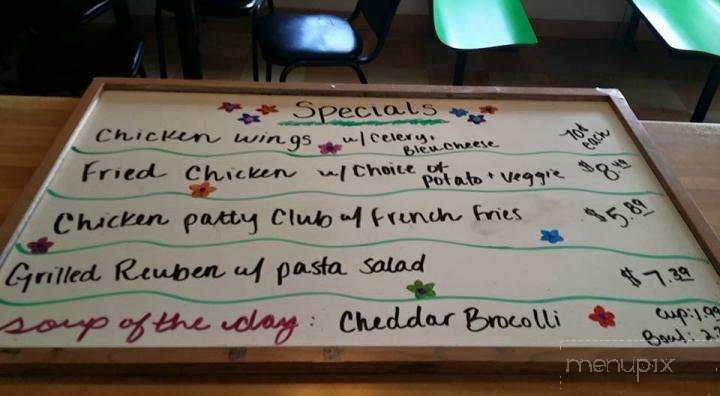 Specials
Chicken wings w/ Celery, 70¢ each
Bleu Cheese
Fried Chicken w/ Choice of potato + veggie $8.49
Chicken patty Club w/ French Fries $5.89
Grilled Reuben w/ pasta salad $7.39
soup of the day: Cheddar Brocolli Cup: 1.99
Bowl: 2.
menupix